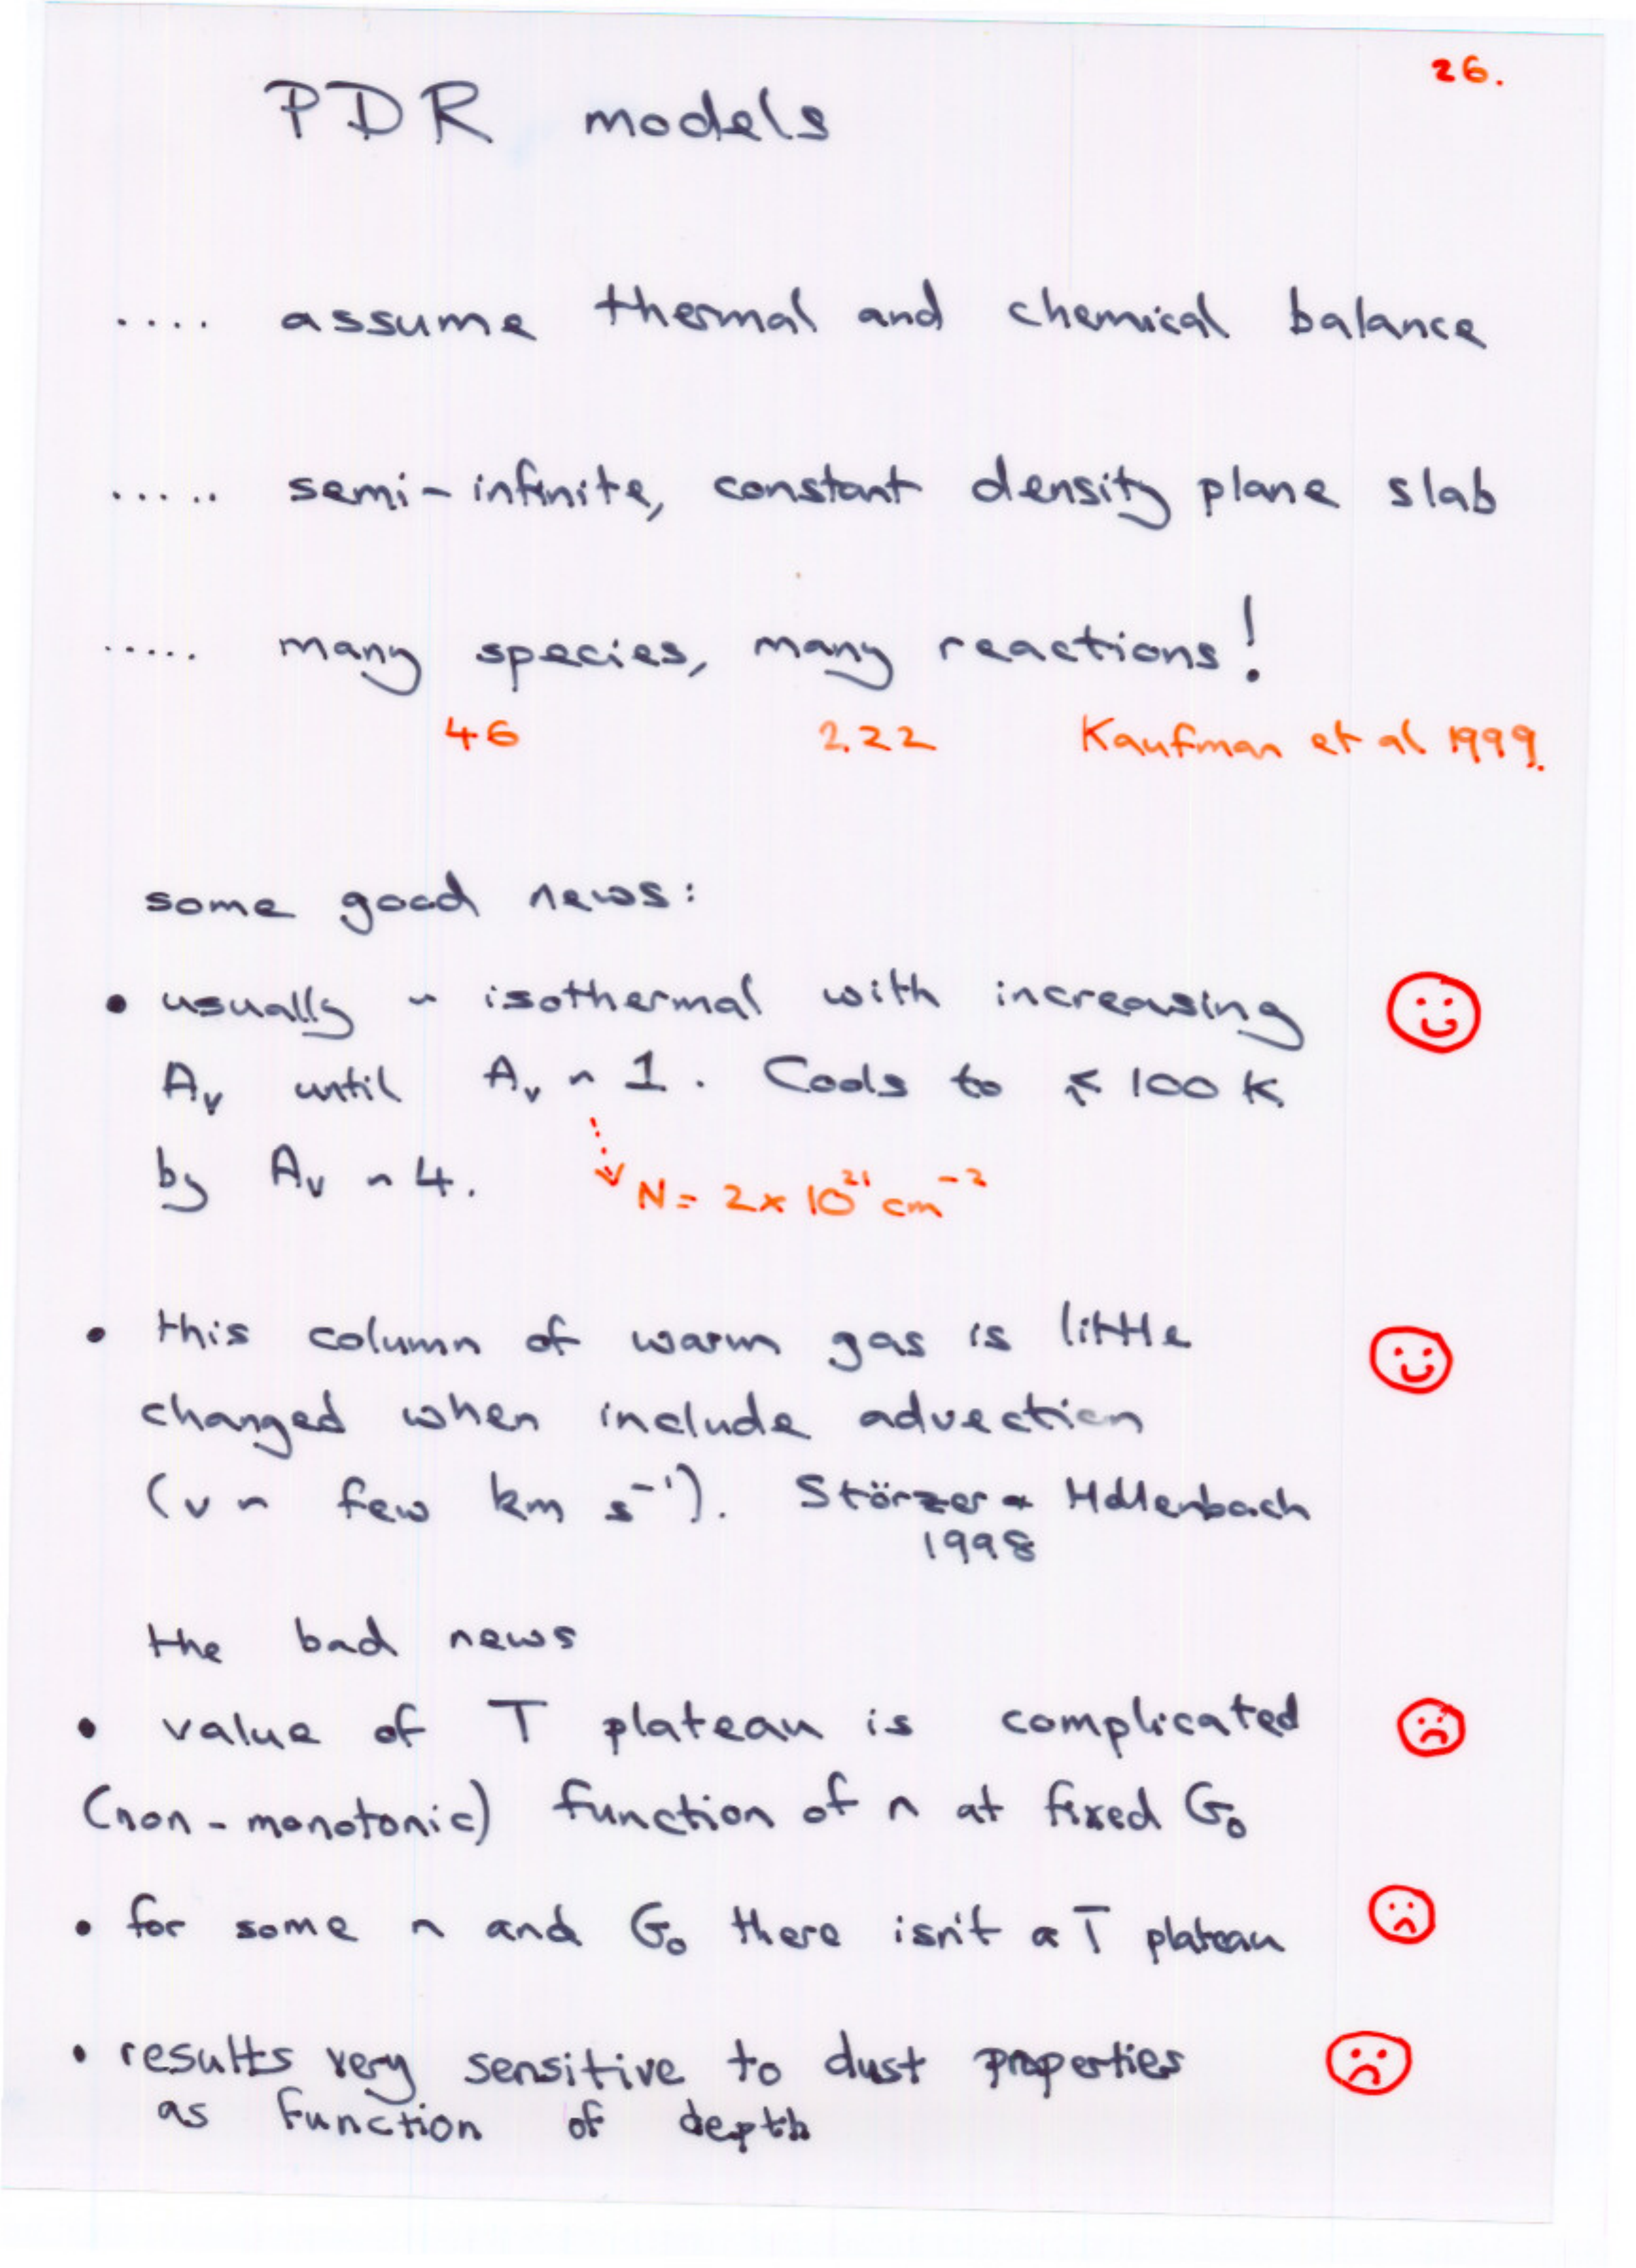 26.
PDR models
.... assume thermal and chemical balance
..... semi-infinite, constant density plane slab
..... many species, many reactions!
46 222 Kaufman et al 1999.
some good news:
• usually ~ isothermal with increasing
Av until Av ~ 1. Cools to ≲ 100 K
by Av ~ 4.
N = 2 × 10²¹ cm⁻²
• this column of warm gas is little
changed when include advection
(v ~ few km s⁻¹). Störzer & Hollenbach
1998
the bad news
• value of T plateau is complicated
(non-monotonic) function of n at fixed G₀
• for some n and G₀ there isn't a T plateau
• results very sensitive to dust properties
as function of depth